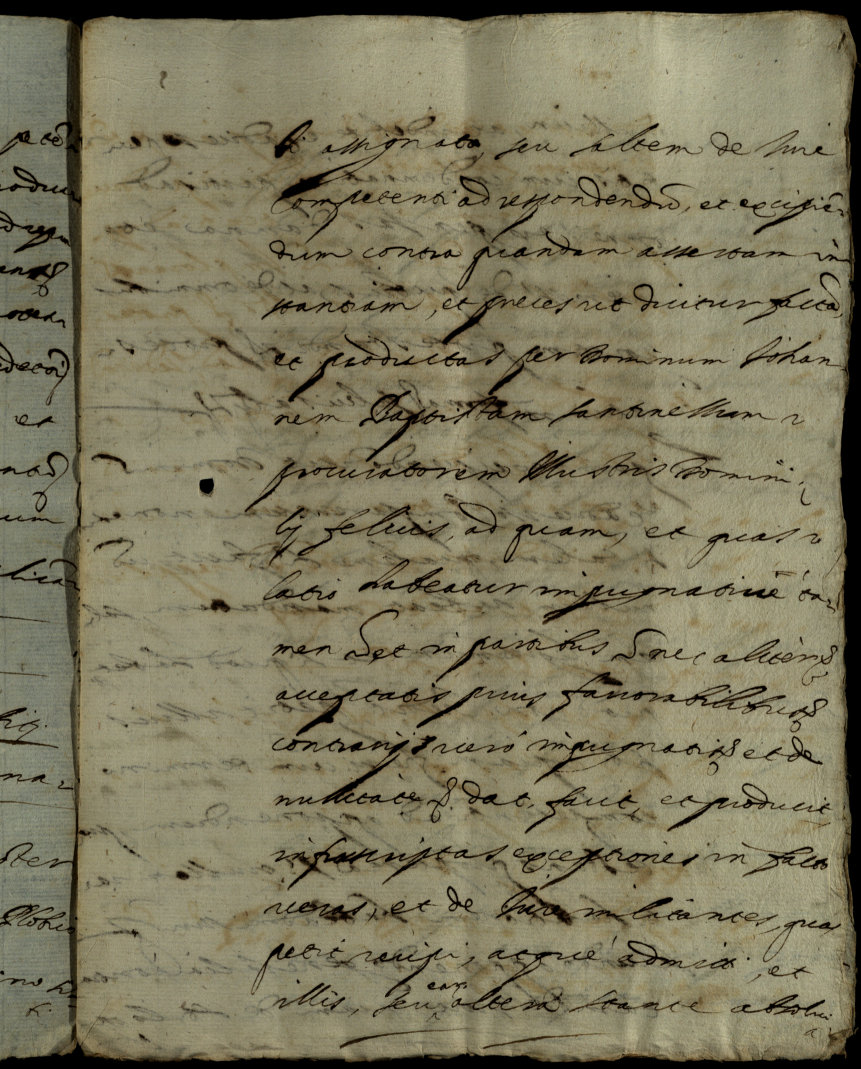 li assignato, seu saltem de Jure
Competenti ad respondendũ, et excipiẽ-
dum contra quandam assertam in
stantiam, et preces ut dicitur factã,
et productas per Dominum Johan
nem Baptistam Santinellium
procuratorem Illustris Domini
lij felicis, ad quam, et quas
latio habeatur impugnativè ta-
men Set in partibus S nec aliter
acceptatis prius favorabilibus
contrarijs verò impugnatis et de
nullitate dat, facit, et producit
infrascriptas exceptiones in facto
veras, et de Jure militantes, quas
petit recipi, atquè admitti, et
illis, seu earũ alterã stante absolui
pe tẽ
odu
et
um
licã
na
ter